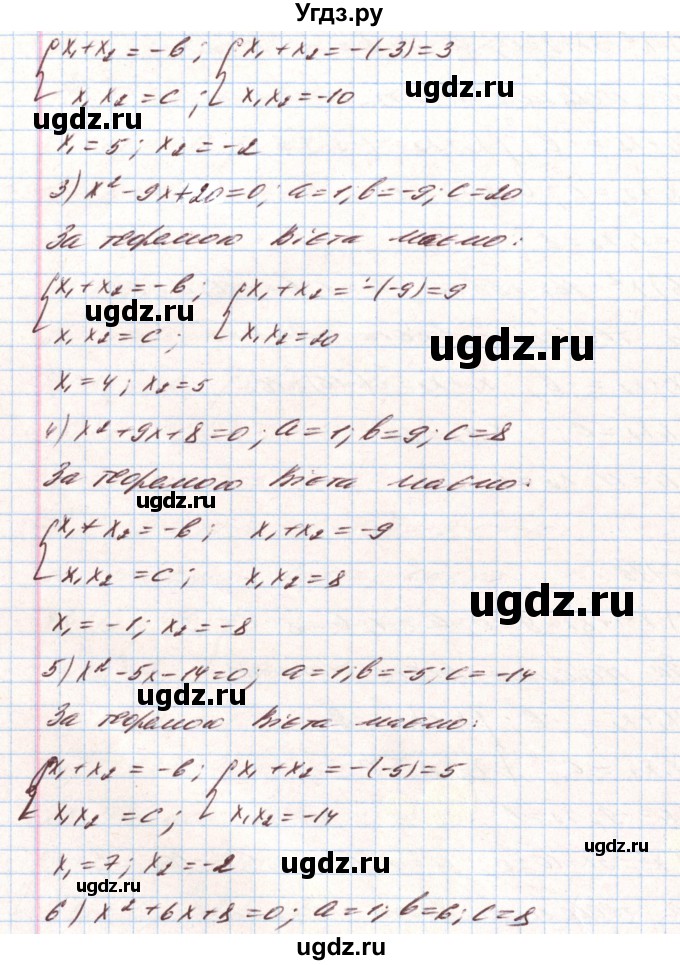 Угдз.ру
{x₁+x₂=-b; {x₁+x₂=-(-3)=3
ugdz.ru
x₁x₂=c; x₁x₂=-10
ugdz.ru
x₁=5; x₂=-2
3) x²-9x+20=0; a=1; b=-9; c=20
ugdz.ru
За теремою Вієта маємо:
{x₁+x₂=-b; {x₁+x₂=-(-9)=9
ugdz.ru
x₁x₂=c; x₁x₂=20
ugdz.ru
x₁=4; x₂=5
4) x²+9x+8=0; a=1; b=9; c=8
За теремою Вієта маємо:
ugdz.ru
{x₁+x₂=-b; x₁+x₂=-9
x₁x₂=c; x₁x₂=8
ugdz.ru
x₁=-1; x₂=-8
5) x²-5x-14=0; a=1; b=-5; c=-14
ugdz.ru
За теремою Вієта маємо:
{x₁+x₂=-b; {x₁+x₂=-(-5)=5
x₁x₂=c; x₁x₂=-14
ugdz.ru
x₁=7; x₂=-2
ugdz.ru
ugdz.ru
6) x²+6x+8=0; a=1; b=6; c=8
ugdz.ru